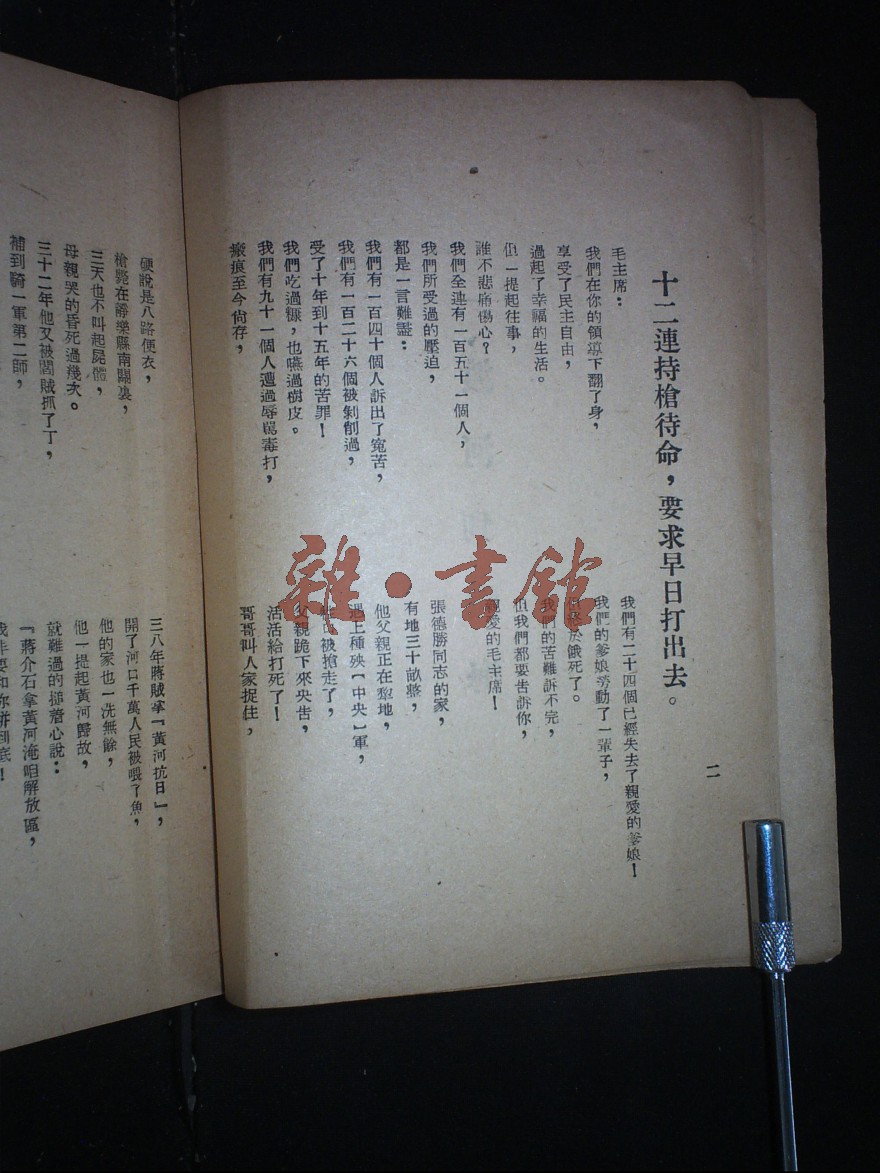 十二連持槍待命，要求早日打出去。
二
毛主席：
我們在你的領導下翻了身，
享受了民主自由，
過起了幸福的生活。
但一提起往事，
誰不悲痛傷心？
我們全連有一百五十一個人，
我們所受過的壓迫，
都是一言難盡：
我們有一百四十個人訴出了寃苦，
我們有一百二十六個被剝削過，
受了十年到十五年的苦罪！
我們吃過糠，也嚥過樹皮。
我們有九十一個人遭過辱罵毒打，
瘢痕至今尙存，
我們有二十四個已經失去了親愛的爹娘！
我們的爹娘勞動了一輩子，
於餓死了。
我們的苦難訴不完，
但我們都要告訴你，
親愛的毛主席！
張德勝同志的家，
有地三十畝整，
他父親正在犂地，
遇上種殃【中央】軍，
牲口被搶走了，
父親跪下來央告，
活活給打死了！
哥哥叫人家捉住，
硬說是八路便衣，
槍斃在縣南關裏，
三天也不叫起屍體，
母親哭的昏死過幾次。
三十二年他又被閻賊抓了丁，
補到騎一軍第二師，
三八年蔣賊拿『黃河抗日』，
開了河口千萬人民被喂了魚，
他的家也一洗無餘，
他一提起黃河歸故，
就難過的搥着心說：
『蔣介石拿黃河淹咱解放區，
我非要和你拼到底！
雜·書館